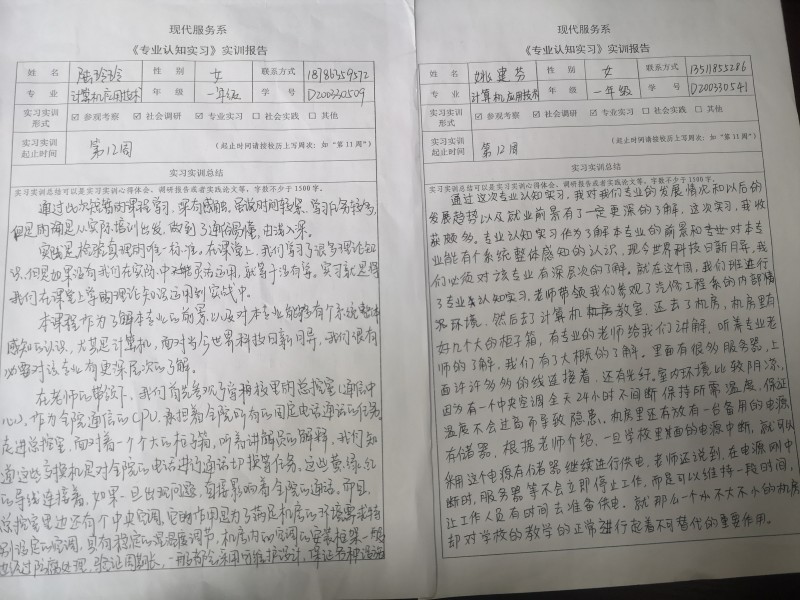 现代服务系
《专业认知实习》实训报告
姓 名 陆玲玲 性 别 女 联系方式 18786359572
专 业 计算机应用技术 年 级 一年级 学 号 D200330509
实习实训形式 ☑ 参观考察 ☑ 社会调研 ☑ 专业实习 ☐ 社会实践 ☐ 其他
实习实训起止时间 第12周 (起止时间请按校历上写周次:如“第11周”)
实习实训总结
实习实训总结可以是实习实训心得体会、调研报告或者实践论文等,字数不少于1500字。
通过此次短暂的课程学习,深有感触,虽说时间较紧,学习任务较多,
但是的确是从实际培训出发,做到了通俗易懂,由浅入深。
实践是检验真理的唯一标准。在课堂上,我们学习了很多理论知
识,但是如果没有我们在实际中灵活运用,就等于没有等。实习就是将
我们在课堂上学的理论知识运用到实战中。
本课程作为了解本专业的前景以及对本专业能够有个系统整体
感知的认识,尤其是计算机,面对当今世界科技日新月异,我们很有
必要对该专业有更深层次的了解。
在老师的带领下,我们首先参观了学校校里的总控室(通信中
心),作为全院通信的CPU,承担着全院所有的固定电话通话的任务,
走进总控室,面对着一个个大的柜子箱,听着讲解员的解释,我们知
道这些交换机是对全院的电话进行通话切换等任务,这些黄、绿、红
的导线连接着,如果一旦出现问题,直接影响着全院的通话。而且,
总控室里边还有个中央空调,它的作用是为了满足机房的环境需求特
别设定的空调,具有稳定的温湿度调节,机房内的空调的安装框架一般
现代服务系
《专业认知实习》实训报告
姓 名 姚建芬 性 别 女 联系方式 13511855286
专 业 计算机应用技术 年 级 一年级 学 号 D200330541
实习实训形式 ☑ 参观考察 ☑ 社会调研 ☑ 专业实习 ☐ 社会实践 ☐ 其他
实习实训起止时间 第12周 (起止时间请按校历上写周次:如“第11周”)
实习实训总结
实习实训总结可以是实习实训心得体会、调研报告或者实践论文等,字数不少于1500字。
通过这次专业认知实习,我对我们专业的发展情况和以后的
发展趋势以及就业前景有了一定更深的了解,这次实习,我收
获颇多。专业认知实习作为了解本专业的前景和专业对本专
业能有个系统整体感知的认识,现今世界科技日新月异,我
们必须对该专业有深层次的了解。就在这个周,我们班进行
了专业认知实习,老师带领我们参观了汽修工程系的内部情
况环境,然后去了计算机机房教室,还去了机房,机房里有
好几个大的柜子箱,有专业的老师给我们讲解,听着专业老
师的了解,我们有了大概的了解。里面有很多服务器,上
面许许多多的线连接着,还有光纤。室内环境比较阴凉,
因为有一个中央空调全天24小时不间断保持所需温度,保证
温度不会过高而导致隐患,机房里还有放有一台备用的电源
存储器,根据老师介绍,一旦学校里面的电源中断,就可以
采用这个电源存储器继续进行供电,老师还说到,在电源刚中
断时,服务器等不会立即停止工作,而是可以维持一段时间,
让工作人员有时间去准备供电,就那么一个小不大不小的机房
却对学校的教学的正常进行起着不可替代的重要作用。